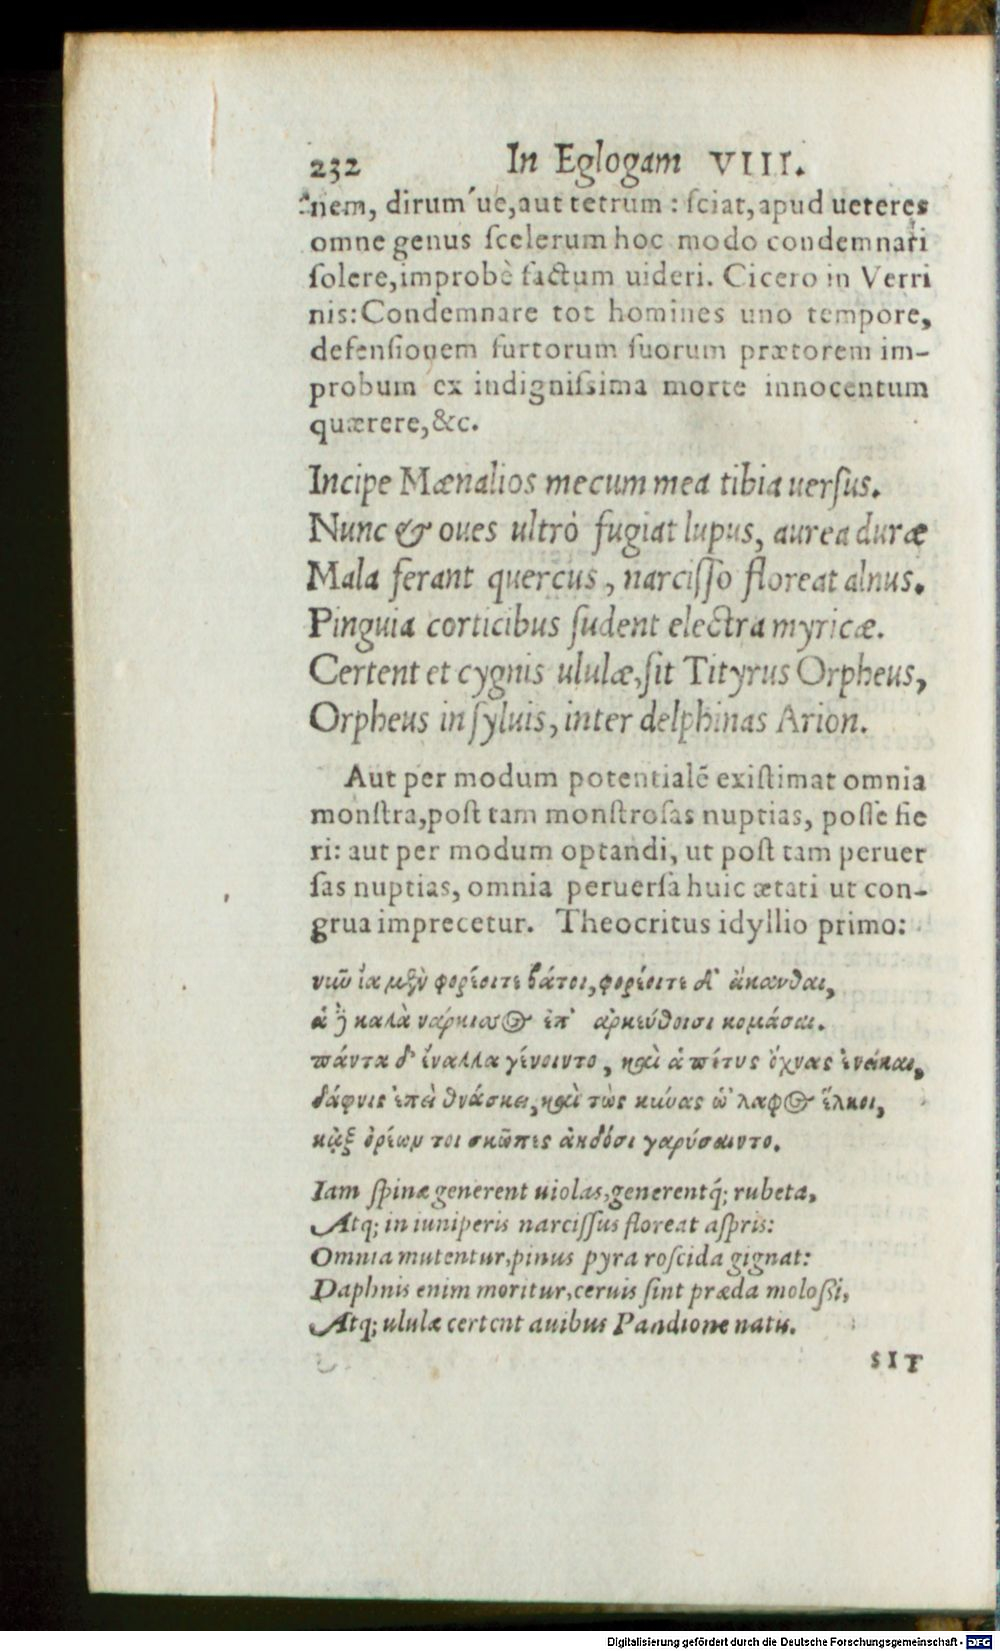 232 In Eglogam VIII.
nem, dirum´ue, aut tetrum: ſciat, apud ueteres
omne genus ſcelerum hoc modo condemnari
ſolere, improbè factum uideri. Cicero in Verri
nis: Condemnare tot homines uno tempore,
defenſionem furtorum ſuorum prætorem im-
probum ex indigniſsima morte innocentum
quærere, &c.
Incipe Mænalios mecum mea tibia uerſus.
Nunc & oues ultrò fugiat lupus, aurea duræ
Mala ferant quercus, narciſſo floreat alnus.
Pinguia corticibus ſudent electra myricæ.
Certent et cygnis ululæ, ſit Tityrus Orpheus,
Orpheus in ſyluis, inter delphinas Arion.
Aut per modum potentialē exiſtimat omnia
monſtra, poſt tam monſtroſas nuptias, poſſe fie
ri: aut per modum optandi, ut poſt tam peruer
ſas nuptias, omnia peruerſa huic ætati ut con-
grua imprecetur. Theocritus idyllio primo:
νιῶ ἴα μὲν φορέοιτε βάτοι, φορέοιτε δ' ἄκανθαι,
ἁ δὲ καλὰ νάρκισσος ἐπ' ἀρκεύθοισι κομάσαι.
πάντα δ' ἔναλλα γένοιντο, καὶ ἁ πίτυς ὄχνας ἐνείκαι,
δάφνις ἐπεὶ θνάσκει, καὶ τὼς κύνας ὡ' λαφος ἕλκοι,
κἠξ ὀρέων τοι σκῶπες ἀηδόσι γαρύσαιντο.
Iam ſpinæ generent uiolas, generentq́; rubeta,
Atq; in iuniperis narciſſus floreat aſpris:
Omnia mutentur, pinus pyra roſcida gignat:
Daphnis enim moritur, ceruis ſint præda moloßi,
Atq; ululæ certent auibus Pandione natis.
SIT
Digitalisierung gefördert durch die Deutsche Forschungsgemeinschaft - DFG